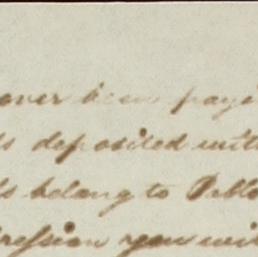 over been payi
ls deposited with
ls belong to Pablo
pression you wi